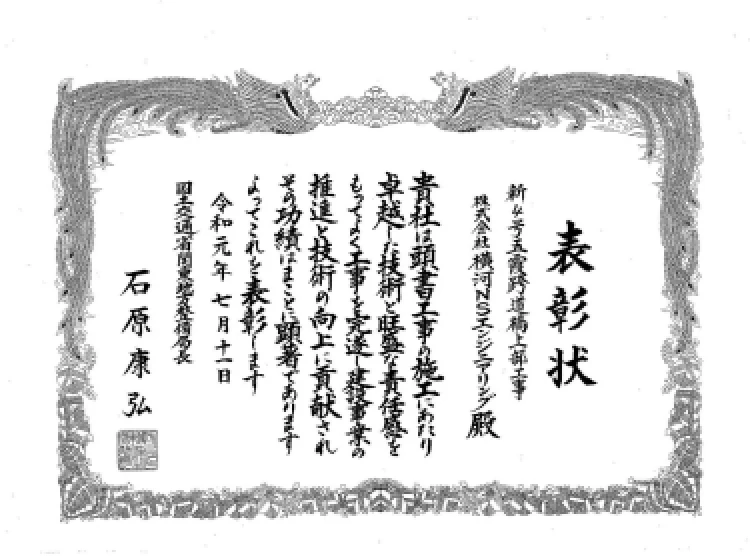 表彰状
新4号五霞跨道橋上部工事
株式会社横河NSエンジニアリング殿
貴社は頭書工事の施工にあたり
卓越した技術と旺盛な責任感を
もってよく工事を完遂し建設事業の
推進と技術の向上に貢献され
その功績はまことに顕著であります
よってこれを表彰します
令和元年七月十一日
国土交通省関東地方整備局長
石原康弘